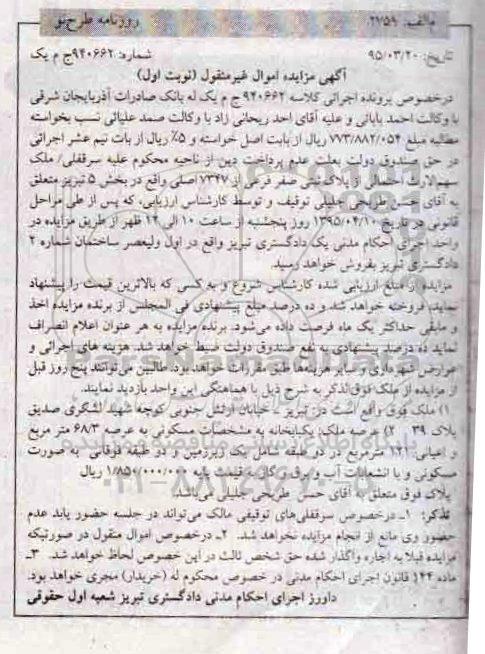 م‌الف. ۲۷۵۹ روزنامه طرح‌نو
تاریخ: ۹۵/۰۳/۲۰ شماره: ۹۴۰۶۶۲ج م یک
آگهی مزایده اموال غیرمنقول (نوبت اول)
درخصوص پرونده اجرائی کلاسه ۹۴۰۶۶۲ ج م یک له بانک صادرات آذربایجان شرقی
با وکالت احمد بابائی و علیه آقای احد ریحانی زاد با وکالت صمد علیائی نسب بخواسته
مطالبه مبلغ ۷۷۳/۸۸۲/۰۵۴ ریال از بابت اصل خواسته و ۵٪ ریال از بات نیم عشر اجرائی
در حق صندوق دولت بعلت عدم پرداخت دین از ناحیه محکوم علیه سرقفلی/ ملک
سهم‌الارث احتمالی از پلاک ثبتی صفر فرعی از ۷۳۴۷ اصلی واقع در بخش ۵ تبریز متعلق
به آقای حسن طریحی جلیلی توقیف و توسط کارشناس ارزیابی، که پس از طی مراحل
قانونی در تاریخ ۱۳۹۵/۰۴/۱۰ روز پنجشنبه از ساعت ۱۰ الی ۱۲ ظهر از طریق مزایده در
واحد اجرای احکام مدنی یک دادگستری تبریز واقع در اول ولیعصر ساختمان شماره ۲
دادگستری تبریز بفروش خواهد رسید.
مزایده از مبلغ ارزیابی شده کارشناس شروع و به کسی که بالاترین قیمت را پیشنهاد
نماید، فروخته خواهد شد و ده درصد مبلغ پیشنهادی فی المجلس از برنده مزایده اخذ
و مابقی حداکثر یک ماه فرصت داده می‌شود. برنده مزایده به هر عنوان اعلام انصراف
نماید ده درصد پیشنهادی به نفع صندوق دولت ضبط خواهد شد. هزینه های اجرائی و
عوارض شهرداری و سایر هزینه‌ها طبق مقررات خواهد بود. طالبین می‌توانند پنج روز قبل
از مزایده از ملک فوق‌الذکر به شرح ذیل با هماهنگی این واحد بازدید نمایند.
۱) ملک فوق واقع است در: تبریز ـ خیابان ارتش جنوبی کوچه شهید لشگری صدیق
پلاک ۳۹ ۲) عرصه ملک: یکبابخانه به مشخصات مسکونی به عرصه ۶۸/۳ متر مربع
و اعیانی: ۱۲۱ مترمربع در دو طبقه شامل یک زیرزمین و دو طبقه فوقانی به صورت
مسکونی و با انشعابات آب و برق و گاز به قیمت پایه ۱/۸۵۰/۰۰۰/۰۰۰ ریال
پلاک فوق متعلق به آقای حسن طریحی جلیلی می‌باشد.
تذکر: ۱ـ درخصوص سرقفلی‌های توقیفی مالک می‌تواند در جلسه حضور یابد عدم
حضور وی مانع از انجام مزایده نخواهد شد. ۲ـ درخصوص اموال منقول در صورتیکه
مزایده قبلا به اجاره واگذار شده حق شخص ثالث در این خصوص لحاظ خواهد شد. ۳ـ
ماده ۱۴۴ قانون اجرای احکام مدنی در خصوص محکوم له (خریدار) مجری خواهد بود.
داورز اجرای احکام مدنی دادگستری تبریز شعبه اول حقوقی
ParsNamadData
پایگاه اطلاع رسانی مناقصه و مزایده
۰۲۱-۸۸۳۴۹۶۷۰-۵